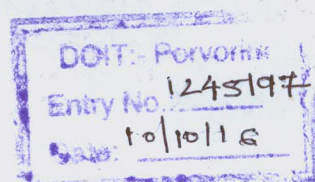 DOIT:- Porvorim
Entry No. 1245197
Date: 10/10/16